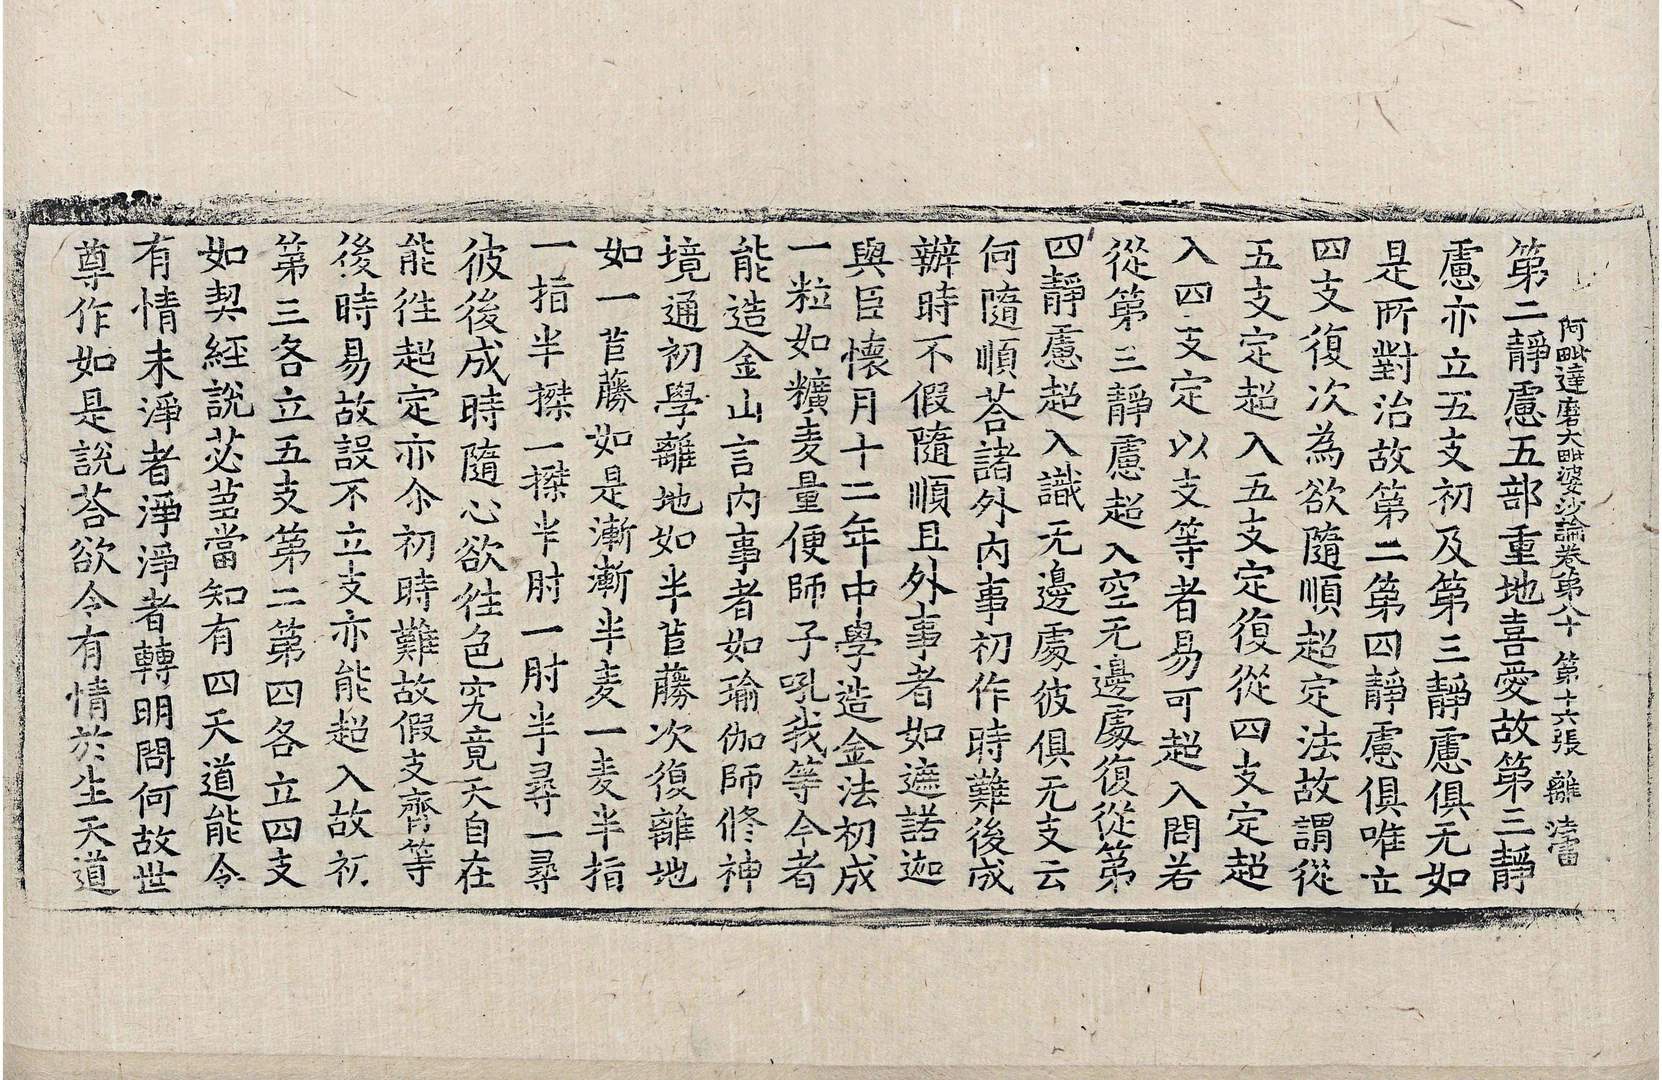 阿毗達磨大毗婆沙論卷第八十 第十六張 離
第二靜慮五部重地喜愛故第三靜
慮亦立五支初及第三靜慮俱无如
是所對治故第二第四靜慮俱唯立
四支復次為欲隨順超定法故謂從
五支定超入五支定復從四支定超
入四支定以支等者易可超入問若
從第三靜慮超入空无邊處復從第
四靜慮超入識无邊處彼俱无支云
何隨順荅諸外內事初作時難後成
辦時不假隨順且外事者如遮諾迦
與臣懷月十二年中學造金法初成
一粒如穬麦量便師子吼我等今者
能造金山言內事者如瑜伽師修神
境通初學離地如半苣藤次復離地
如一苣藤如是漸漸半麦一麦半指
一指半搩一搩半肘一肘半尋一尋
彼後成時隨心欲往色究竟天自在
能往超定亦尒初時難故假支齊等
後時易故設不立支亦能超入故初
第三各立五支第二第四各立四支
如契經說苾芻當知有四天道能令
有情未淨者淨淨者轉明問何故世
尊作如是說荅欲令有情於生天道